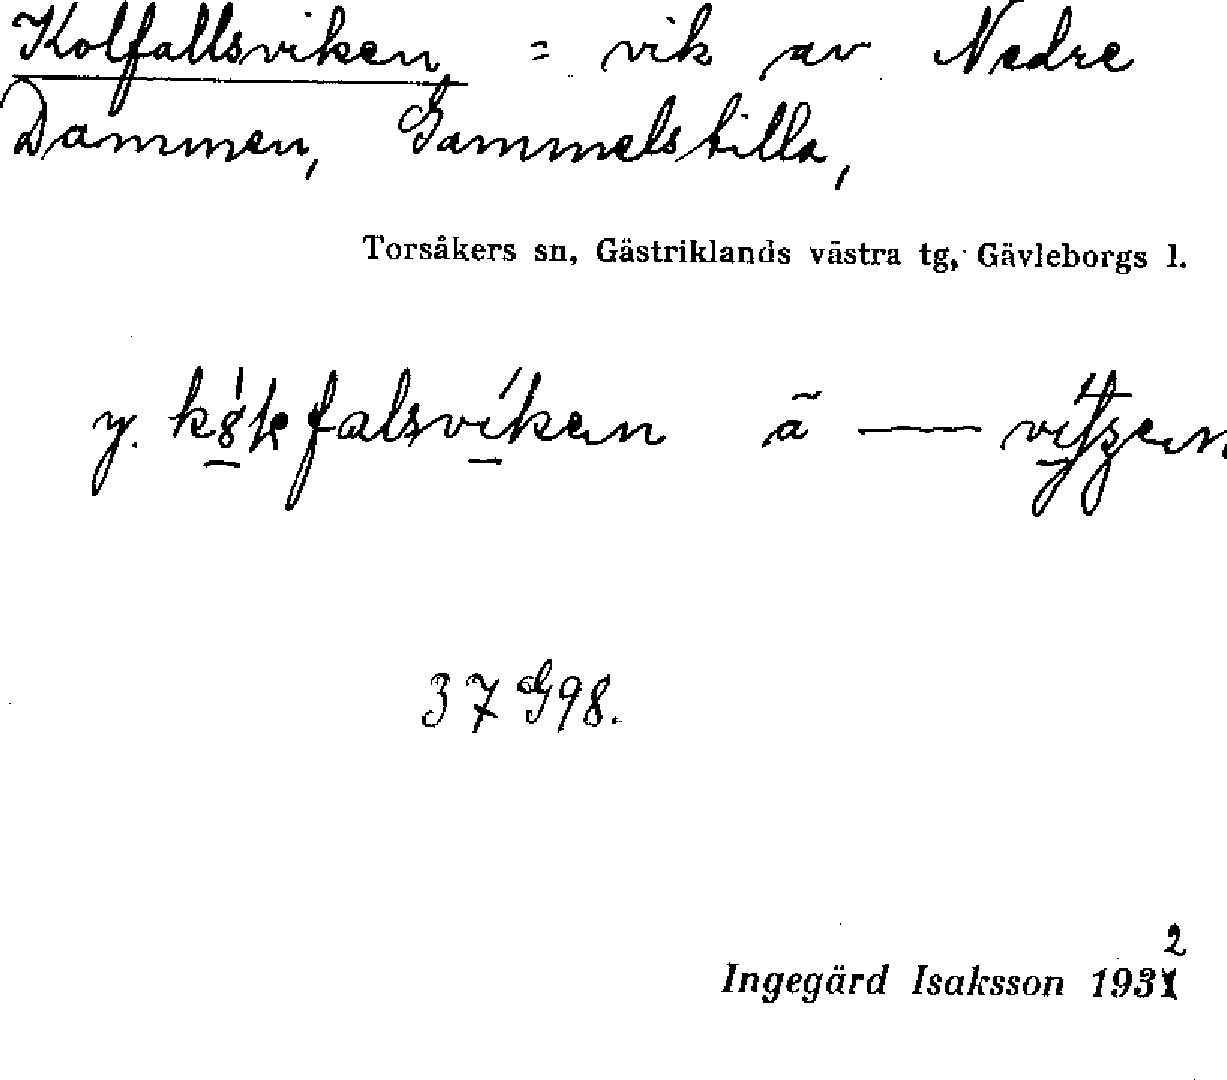 Kolfallsviken = vik av Nedre
Dammen, Gammelstilla,
Torsåkers sn, Gästriklands västra tg, Gävleborgs l.
y. falsvíken ã —
37 G 98.
2
Ingegärd Isaksson 1931